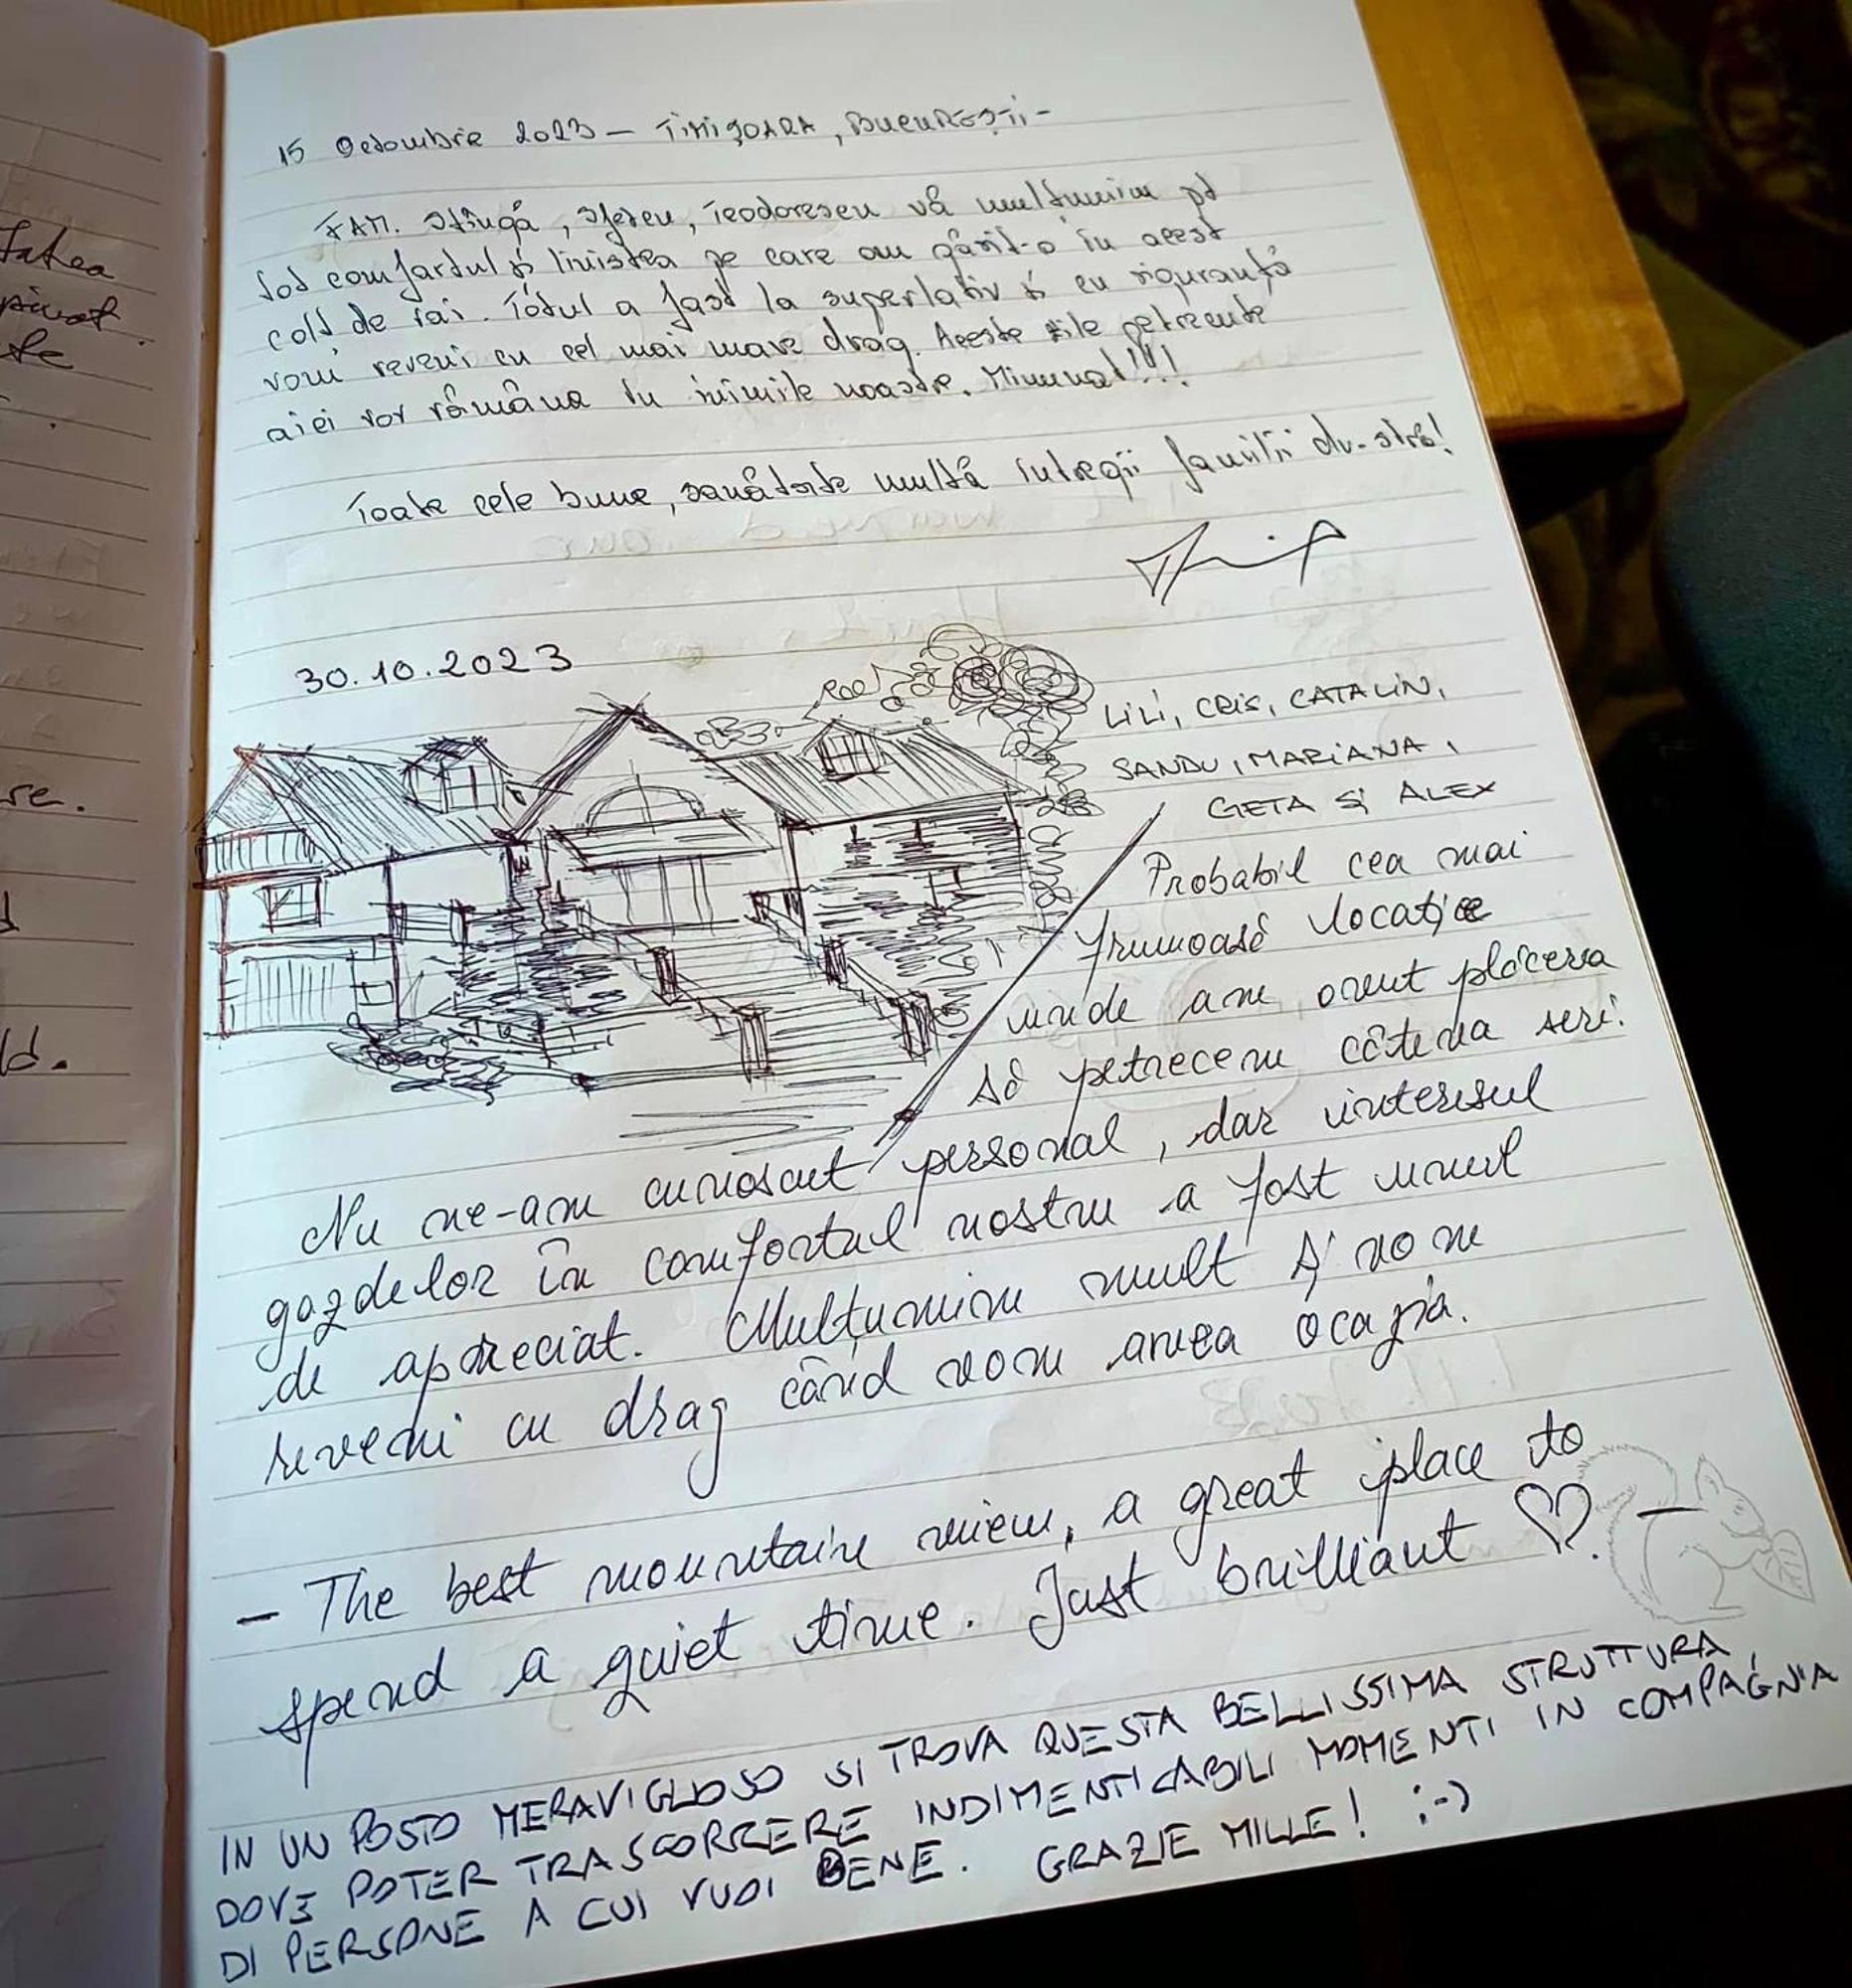 tatea
privat
te
se.
d.
15 Octombrie 2023 – TIMIȘOARA, BUCUREȘTI -
FAM. Stîngă, Sfetcu, Teodorescu vă mulțumim pt
tot comfortul și liniștea pe care am găsit-o în acest
colț de rai. Totul a fost la superlativ și cu siguranță
vom reveni cu cel mai mare drag. Aceste zile petrecute
aici vor rămâne în inimile noastre. Minunat!!!
Toate cele bune, sănătate multă întregii familii dv-stră!
30.10.2023
LILI, CRIS, CATALIN,
SANDU, MARIANA,
GETA ȘI ALEX
Probabil cea mai
frumoasă locație
unde am avut plăcerea
să petrecem câteva seri.
Nu ne-am cunoscut personal, dar interesul
gazdelor în comfortul nostru a fost unul
de apreciat. Mulțumim mult și vom
reveni cu drag când vom avea ocazia.
– The best mountain view, a great place to
spend a quiet time. Just brilliant ♡. –
IN UN POSTO MERAVIGLIOSO SI TROVA QUESTA BELLISSIMA STRUTTURA,
DOVE POTER TRASCORRERE INDIMENTICABILI MOMENTI IN COMPAGNIA
DI PERSONE A CUI VUOI BENE. GRAZIE MILLE! :-)